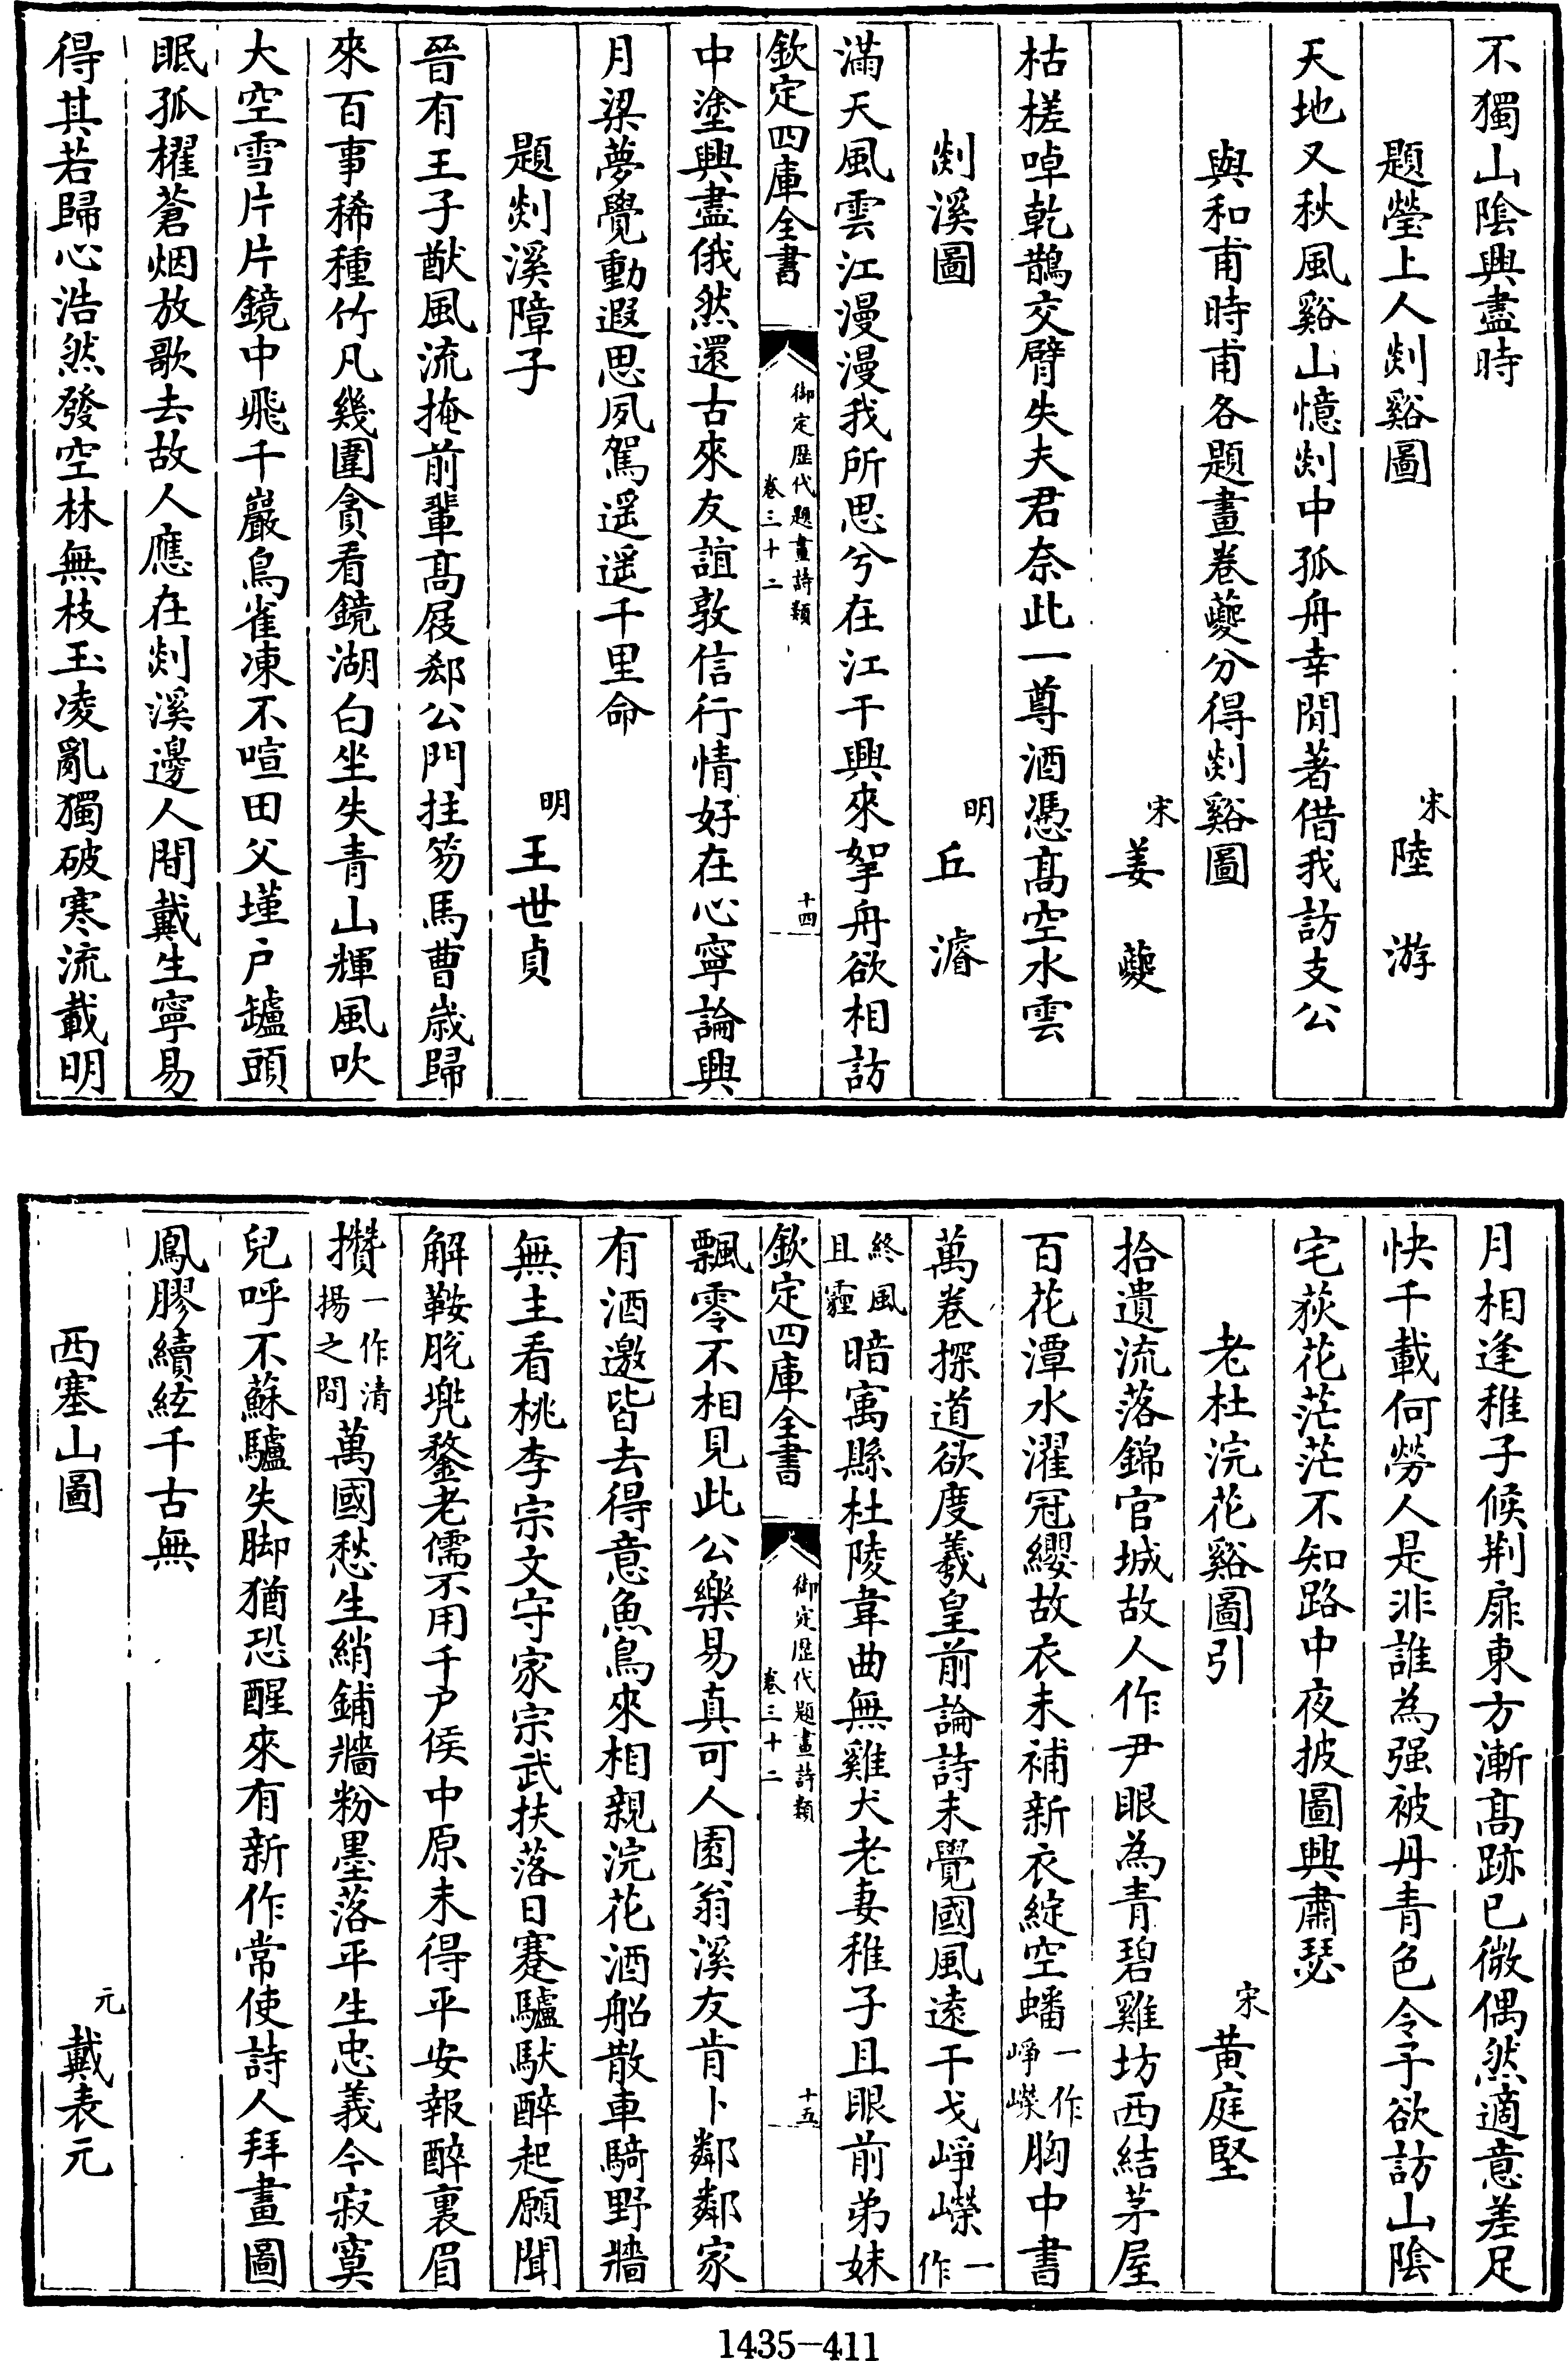 不獨山陰興盡時
題瑩上人剡谿圖　宋陸游
天地又秋風谿山憶剡中孤舟幸閒著借我訪支公
與和甫時甫各題畫卷夔分得剡谿圖
宋姜夔
枯槎啅乾鵲交臂失夫君奈此一尊酒憑髙空水雲
剡溪圖　明丘濬
滿天風雲江漫漫我所思兮在江干興來挐舟欲相訪
欽定四庫全書　御定歴代題畫詩類　卷三十二　十四
中塗興盡俄然還古來友誼敦信行情好在心寧論興
月梁夢覺動遐思夙駕遥遥千里命
題剡溪障子　明王世貞
晉有王子猷風流掩前輩髙屐郄公門拄笏馬曹歲歸
來百事稀種竹凡幾圍貪看鏡湖白坐失青山輝風吹
大空雪片片鏡中飛千巖鳥雀凍不喧田父墐户罏頭
眠孤櫂蒼烟放歌去故人應在剡溪邊人間戴生寧易
得其若歸心浩然發空林無枝玉凌亂獨破寒流載明
月相逢稚子候荆扉東方漸髙跡已微偶然適意差足
快千載何勞人是非誰為强被丹青色令予欲訪山陰
宅荻花茫茫不知路中夜披圖興肅瑟
老杜浣花谿圖引　宋黄庭堅
拾遺流落錦官城故人作尹眼為青碧雞坊西結茅屋
百花潭水濯冠纓故衣未補新衣綻空蟠一作崢嶸胸中書
萬卷探道欲度羲皇前論詩未覺國風遠干戈崢嶸一作
終風且霾暗寓縣杜陵韋曲無雞犬老妻稚子且眼前弟妹
欽定四庫全書　御定歴代題畫詩類　卷三十二　十五
飄零不相見此公樂易真可人園翁溪友肯卜鄰鄰家
有酒邀皆去得意魚鳥來相親浣花酒船散車騎野牆
無主看桃李宗文守家宗武扶落日蹇驢馱醉起願聞
解鞍脱兠鍪老儒不用千户侯中原未得平安報醉裏眉
攢一作清揚之間萬國愁生綃鋪牆粉墨落平生忠義今寂寞
兒呼不蘇驢失脚猶恐醒來有新作常使詩人拜畫圖
鳳膠續絃千古無
西塞山圖　元戴表元
1435-411